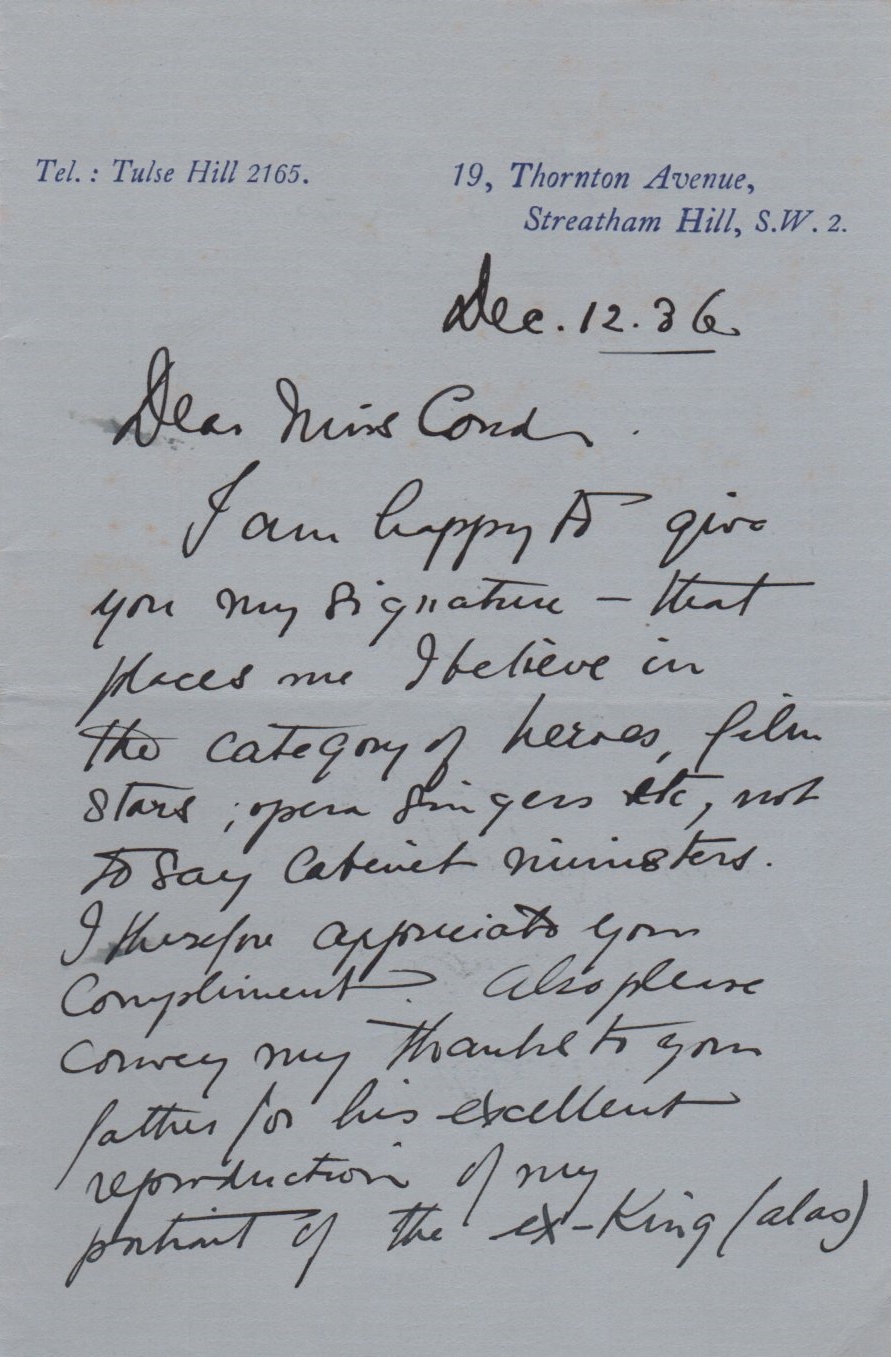 Tel. : Tulse Hill 2165.
19, Thornton Avenue,
Streatham Hill, S.W. 2.
Dec. 12. 36
Dear Miss
I am happy to give
you my signature – that
places me I believe in
the category of heroes, film
stars, opera singers etc, not
to say Cabinet ministers.
I therefore appreciate your
Compliment. Also please
convey my thanks to your
father for his excellent
reproduction of my
portrait of the ex-King (alas)